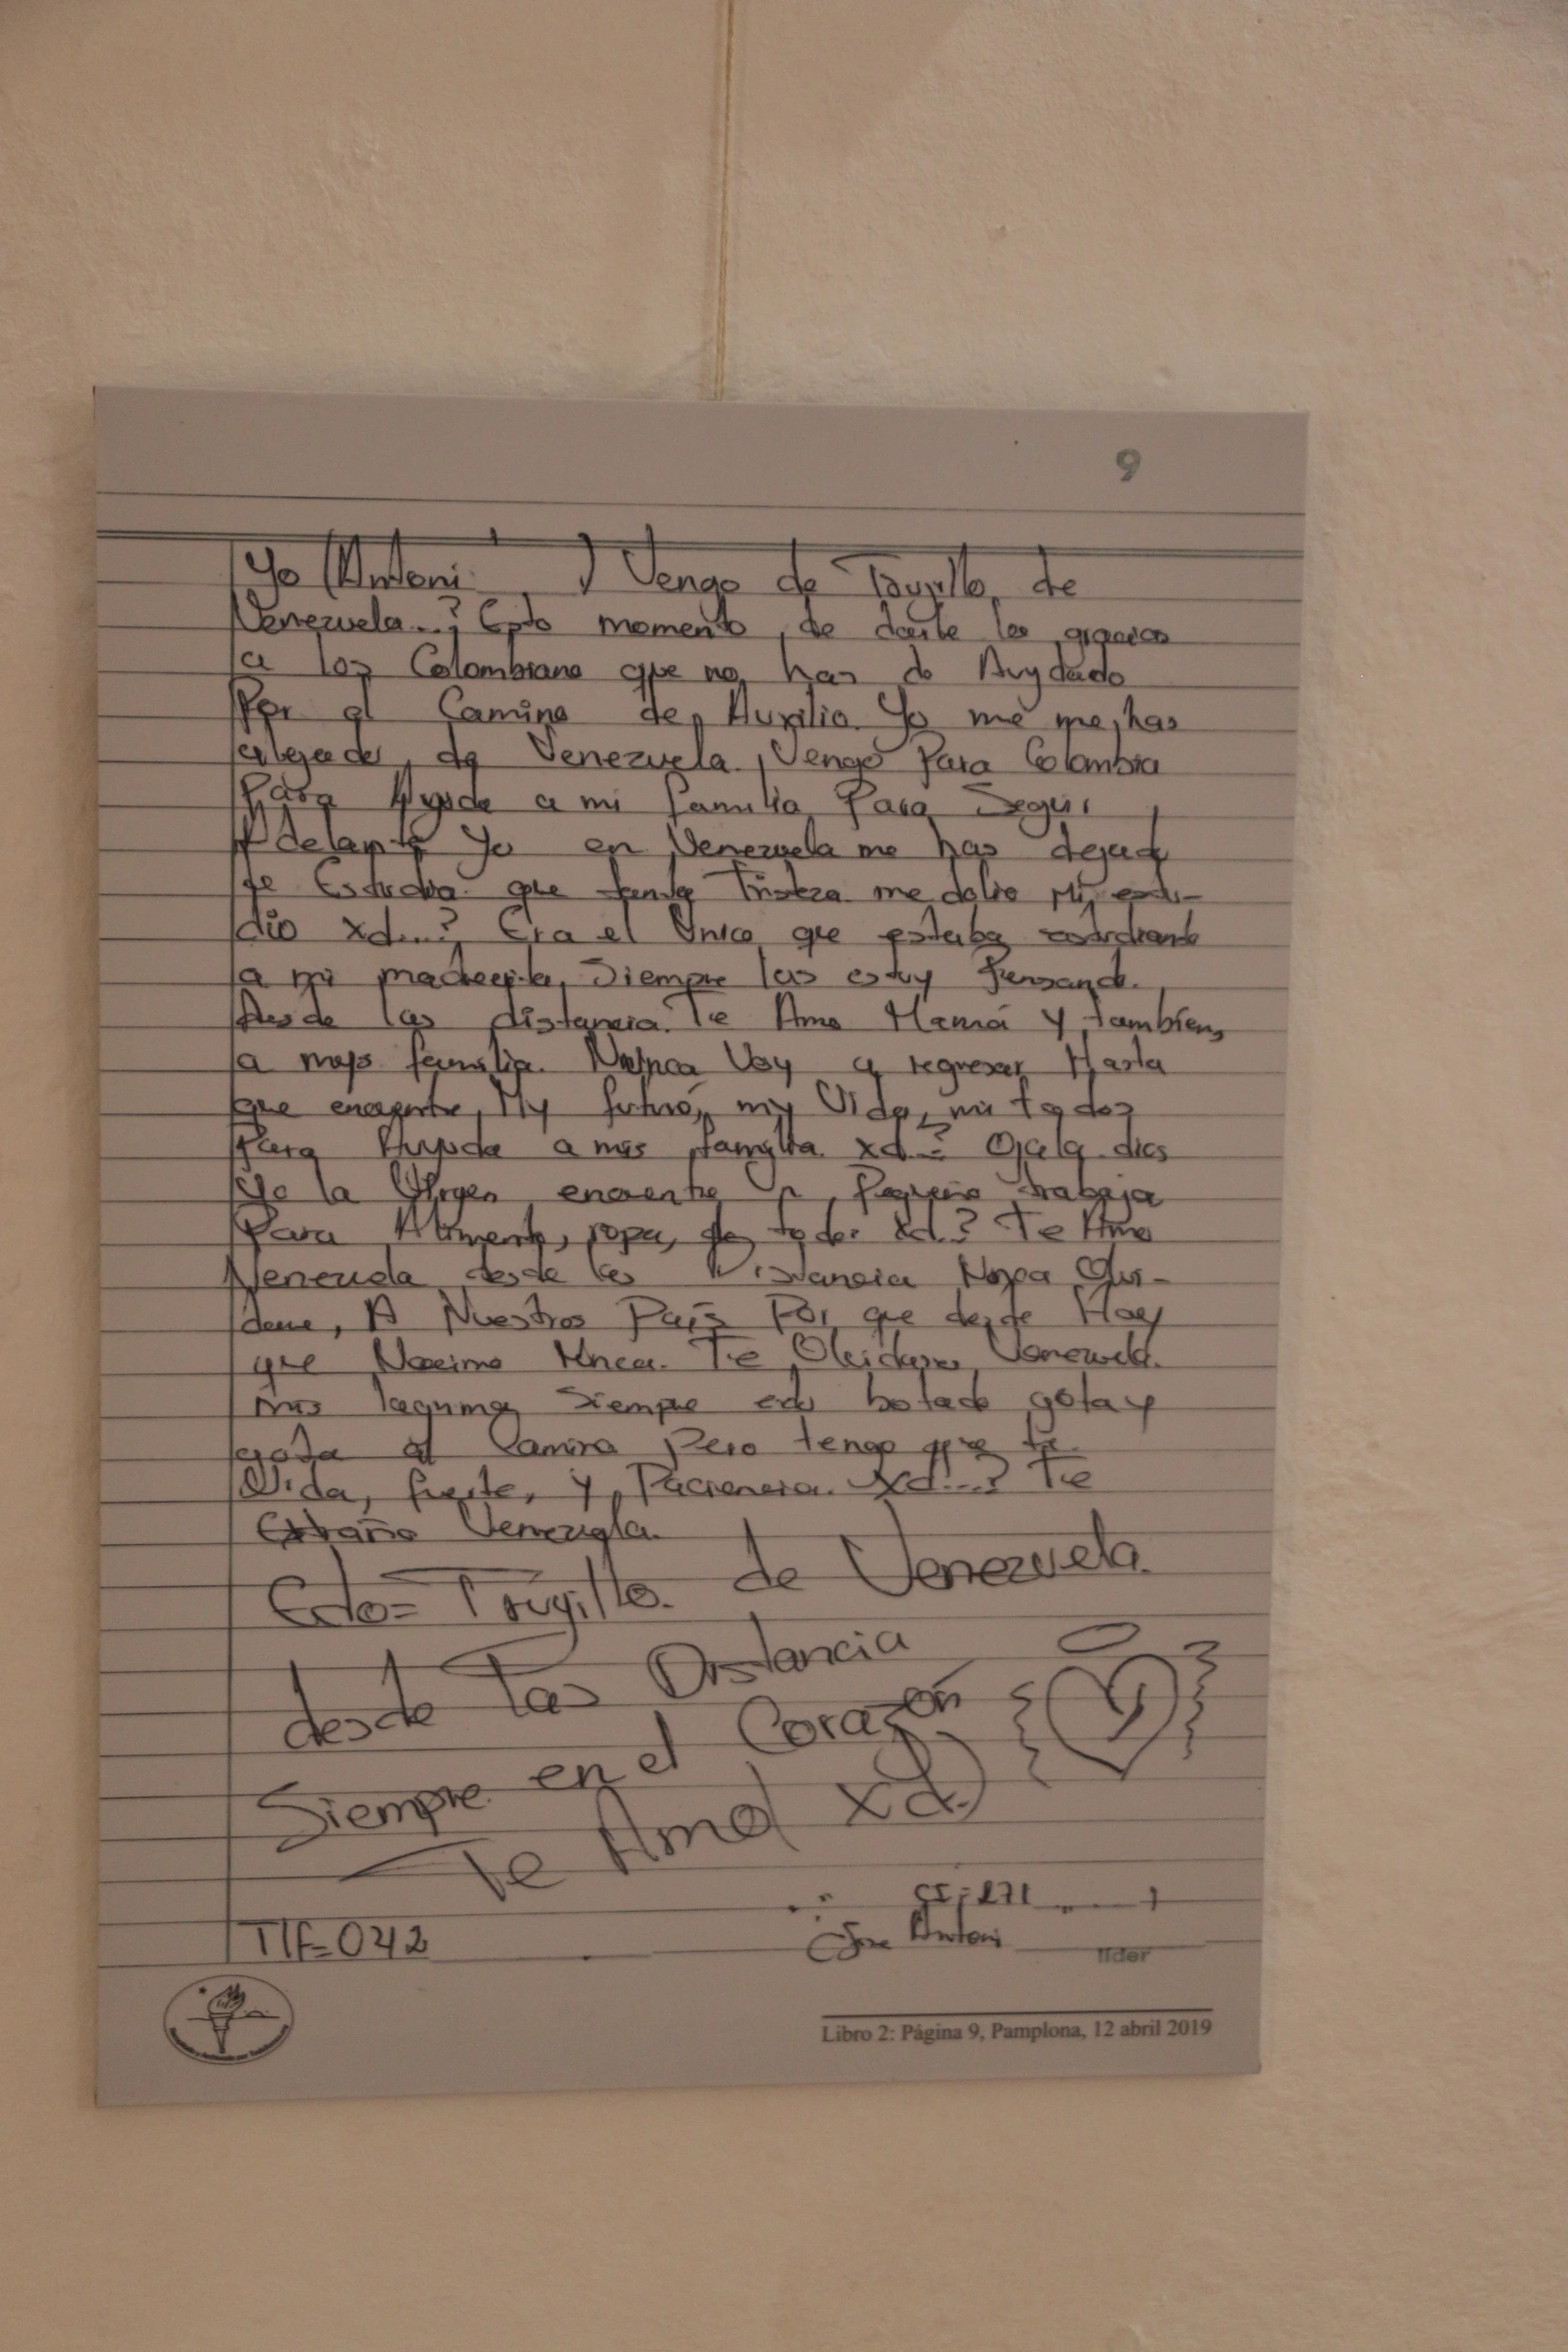 9
Yo Antoni J Vengo de Trugillo, de
Venezuela..? Esto momento, de darle las gracias
a los Colombiano que no, has do Auydado
Por el Camino de, Auxilio. Yo me me, has
alejado, de Venezuela. Vengo Para Colombia
Para Ayuda a mi familia Para Segui
Adelante Yo en Venezuela me has dejado
de Estudia. que tanta Tristeza me dolio Mi estu-
dio xd...? Era el Único que estaba estudiante
a mi madrecita, Siempre las estoy Pensando.
desde las distancia. Te Amo Mamá y tambien,
a mis familia. Nunca Voy a regresar Hasta
que encuentre, My futuro, my Vida, mi todo?
Para Ayuda a mis familia. xd..? Ojala dios
Yo la Virgen encuentre Un Pequeño trabaja
Para Alimento, ropa, de todo. xd.? Te Amo
Venezuela desde las Distancia Nunca Olvi-
dame, A Nuestros País Por que desde Hoy
que Nacimo Unca. Te Olvidare, Venezuela.
mis laguma Siempre edo botado gota y
gota al Camino Pero tengo que
Vida, fuerte, y Paciencia. Xd...? Te
Extraño Venezuela.
Edo= Trugillo. de Venezuela.
desde las Distancia
Siempre en el Corazón
Te Amo xd.
CI: 271
Jose Antoni
Tlf=042
líder
Libro 2: Página 9, Pamplona, 12 abril 2019